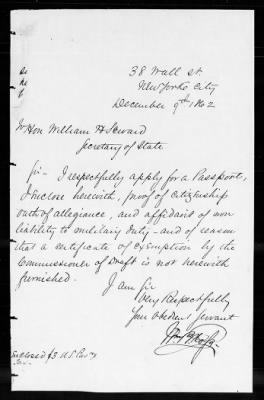 38 Wall St.
New York City
December 9th 1862
Hon William H Seward
Secretary of State
Sir - I respectfully apply for a Passport,
I enclose herewith, proof of Citizenship
oath of allegiance, and affidavit of non
liability to military duty - and of reason
that a certificate of exemption by the
Commissioner of Draft is not herewith
furnished.
I am Sir
Very Respectfully
Your Obedient Servant
Enclosed $3 U.S.